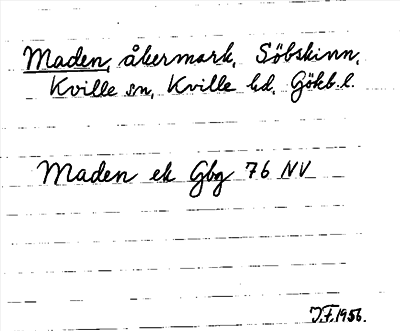 Maden, åkermark, Söbskinn,
Kville sn, Kville hd, Gökb.l.
Maden ek Gbg 76 NV
J.F. 1956.